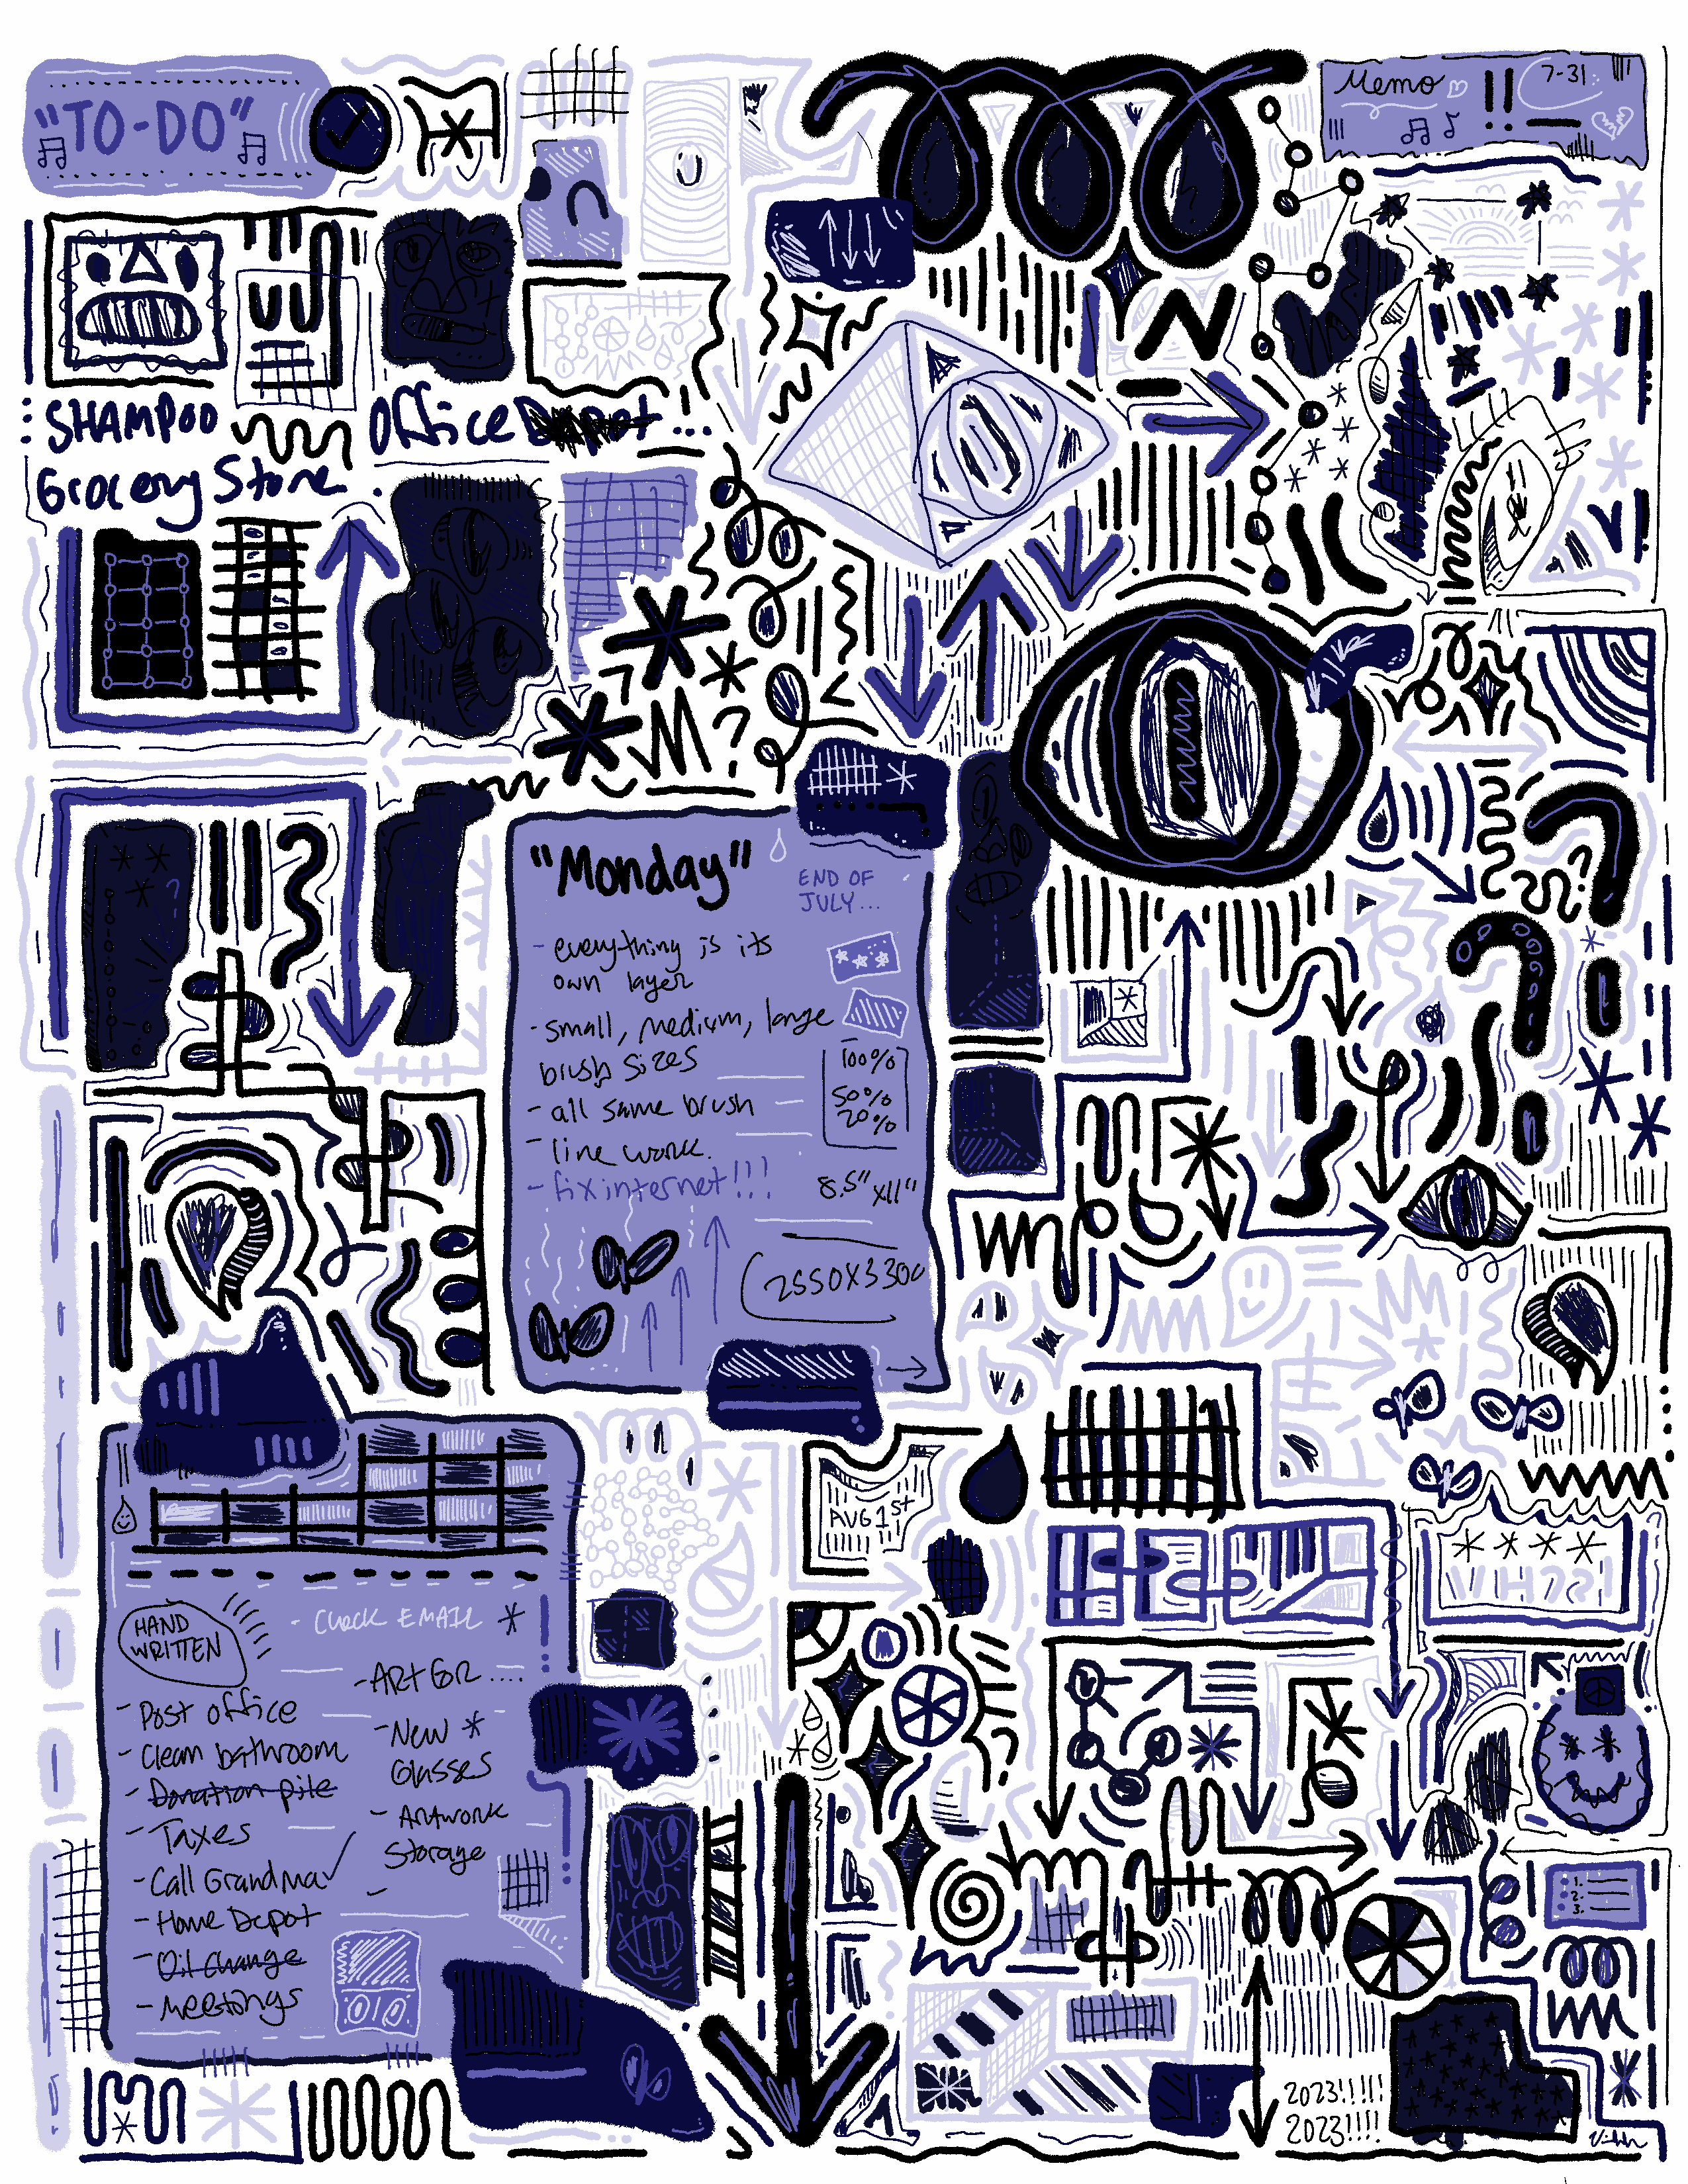 "TO-DO"
Memo !! 7-31
SHAMPOO
Office Depot ...
Grocery Store.
?
"Monday"
END OF
JULY...
- everything is its
own layer
- small, medium, large
brush sizes
100%
50%
20%
- all same brush
- line work.
- fix internet!!!
8.5" x11"
2550X3300
?
AUG 1st
HAND
WRITTEN
- Check EMAIL *
- Post office
- Clean bathroom
- Donation pile
- Taxes
- Call Grandma
- Home Depot
- Oil change
- Meetings
- Art for ....
- New *
Glasses
- Artwork
Storage
-
****
1.
2.
3.
2023!!!!!
2023!!!!